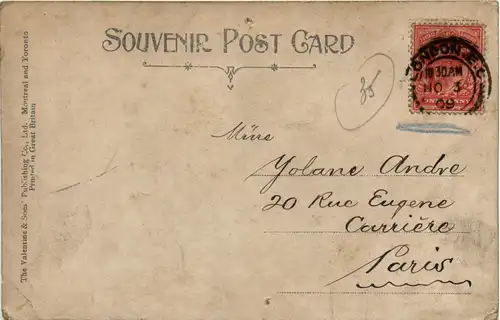 SOUVENIR POST CARD
35
LONDON. E.C
10 30 AM
NO 3
ONE PENNY
Mme
Yolane Andre
20 Rue Eugene
Carrière
Paris
The Valentine & Sons' Publishing Co., Ltd., Montreal and Toronto
Printed in Great Britain